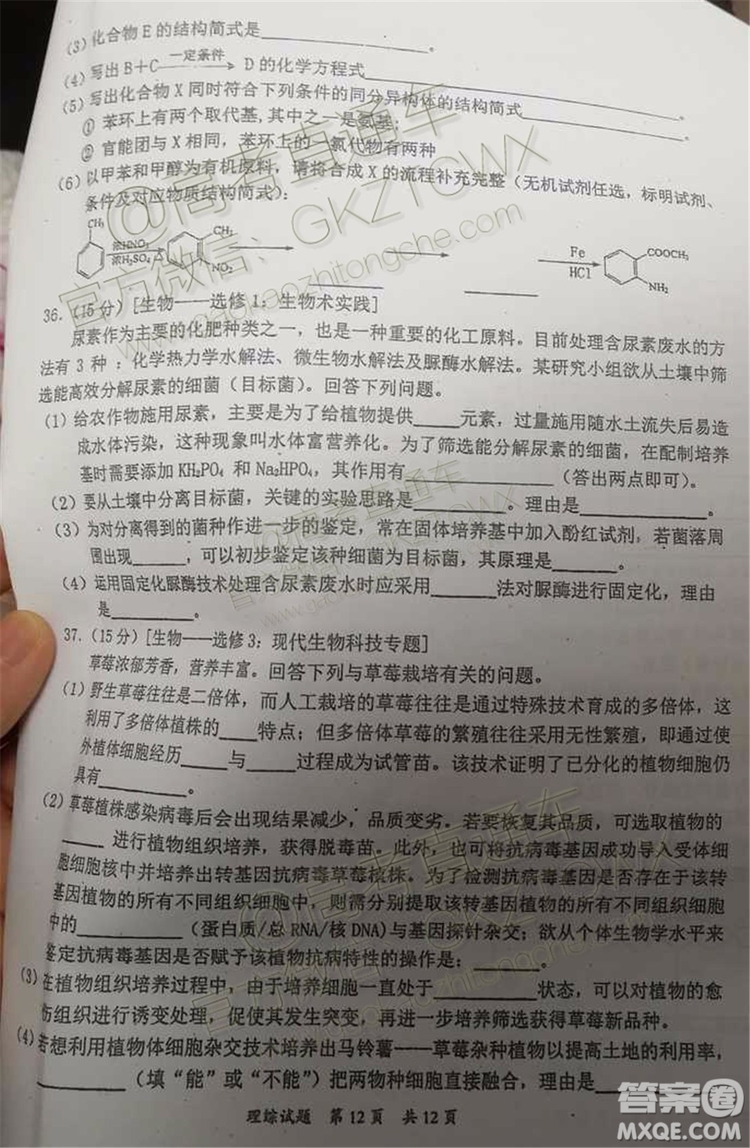 (3)化合物 E 的结构简式是____________。
(4)写出 B+C 一定条件 D 的化学方程式____________
(5)写出化合物 X 同时符合下列条件的同分异构体的结构简式____________。
① 苯环上有两个取代基,其中之一是氨基;
② 官能团与 X 相同,苯环上的一氯代物有两种
(6)以甲苯和甲醇为有机原料,请将合成 X 的流程补充完整(无机试剂任选,标明试剂、
条件及对应物质结构简式):
CH₃ 浓HNO₃ 浓H₂SO₄ CH₃ NO₂ ______ ______ Fe HCl COOCH₃ NH₂
36.(15分)[生物——选修1:生物术实践]
尿素作为主要的化肥种类之一,也是一种重要的化工原料。目前处理含尿素废水的方
法有 3 种:化学热力学水解法、微生物水解法及脲酶水解法。某研究小组欲从土壤中筛
选能高效分解尿素的细菌(目标菌)。回答下列问题。
(1)给农作物施用尿素,主要是为了给植物提供_____元素,过量施用随水土流失后易造
成水体污染,这种现象叫水体富营养化。为了筛选能分解尿素的细菌,在配制培养
基时需要添加 KH₂PO₄ 和 Na₂HPO₄,其作用有______________(答出两点即可)。
(2)要从土壤中分离目标菌,关键的实验思路是________。理由是________。
(3)为对分离得到的菌种作进一步的鉴定,常在固体培养基中加入酚红试剂,若菌落周
围出现_____,可以初步鉴定该种细菌为目标菌,其原理是________。
(4)运用固定化脲酶技术处理含尿素废水时应采用______法对脲酶进行固定化,理由
是________。
37.(15分)[生物——选修3:现代生物科技专题]
草莓浓郁芳香,营养丰富。回答下列与草莓栽培有关的问题。
(1)野生草莓往往是二倍体,而人工栽培的草莓往往是通过特殊技术育成的多倍体,这
利用了多倍体植株的_____特点;但多倍体草莓的繁殖往往采用无性繁殖,即通过使
外植体细胞经历_____与_____过程成为试管苗。该技术证明了已分化的植物细胞仍
具有________。
(2)草莓植株感染病毒后会出现结果减少,品质变劣。若要恢复其品质,可选取植物的
____ 进行植物组织培养,获得脱毒苗。此外,也可将抗病毒基因导入受体细
胞细胞核中并培养出转基因抗病毒草莓植株。为了检测抗病毒基因是否存在于该转
基因植物的所有不同组织细胞中,则需分别提取该转基因植物的所有不同组织细胞
中的__________(蛋白质/总 RNA/核 DNA)与基因探针杂交;欲从个体生物学水平来
鉴定抗病毒基因是否赋予该植物抗病特性的操作是:________。
(3)在植物组织培养过程中,由于培养细胞一直处于__________状态,可以对植物的愈
伤组织进行诱变处理,促使其发生突变,再进一步培养筛选获得草莓新品种。
(4)若想利用植物体细胞杂交技术培养出马铃薯——草莓杂种植物以提高土地的利用率,
________(填“能”或“不能”)把两物种细胞直接融合,理由是________。
理综试题 第12页 共12页
@高考直通车
官方微信:GKZTCWX
www.gaokaozhitongche.com
@高考直通车
答案圈
MXQE.COM